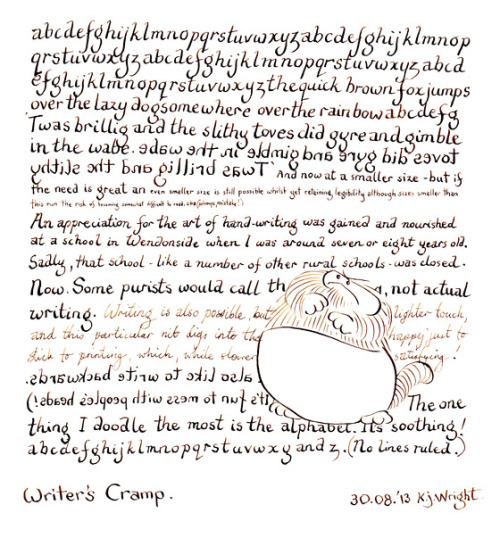 abcdefghijklmnopqrstuvwxyzabcdefghijklmnop
qrstuvwxyzabcdefghijklmnopqrstuvwxyzabcd
efghijklmnopqrstuvwxyzthequick brown fox jumps
over the lazy dogsomewhere over the rainbow abcdefg
'Twas brillig and the slithy toves did gyre and gimble
in the wabe.
'Twas brillig and the slithy
toves did gyre and gimble in the wabe.
And now at a smaller size - but if
the need is great an even smaller size is still possible whilst yet retaining legibility although sizes smaller than
this run the risk of becoming somewhat difficult to read. (whoops, mistake!)
An appreciation for the art of hand-writing was gained and nourished
at a school in Wendonside when I was around seven or eight years old.
Sadly, that school - like a number of other rural schools - was closed.
Now. Some purists would call th , not actual
writing. Writing is also possible, but lighter touch,
and this particular nib digs into the happy just to
stick to printing, which, while slower satisfying!
I also like to write backwards.
It's fun to mess with peoples' heads!) The one
thing I doodle the most is the alphabet. Its soothing!
abcdefghijklmnopqrstuvwxy and z. (No lines ruled.)
Writer's Cramp.
30.08.'13 KJ Wright.